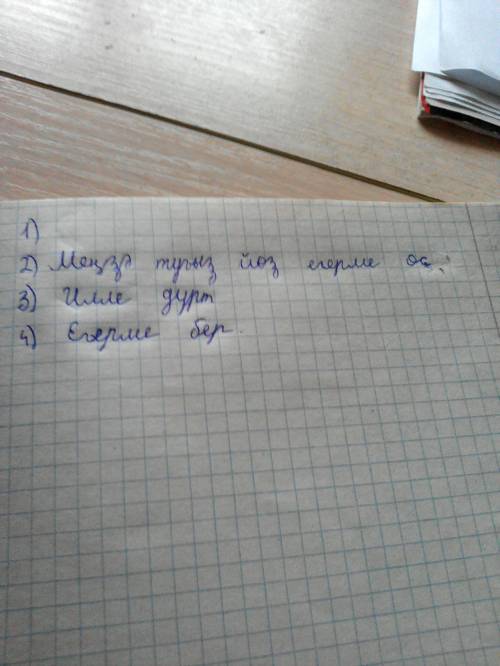 1)
2) Меңзә тугыз йөз егерме
3) Илле дүрт
4) Егерме бер.